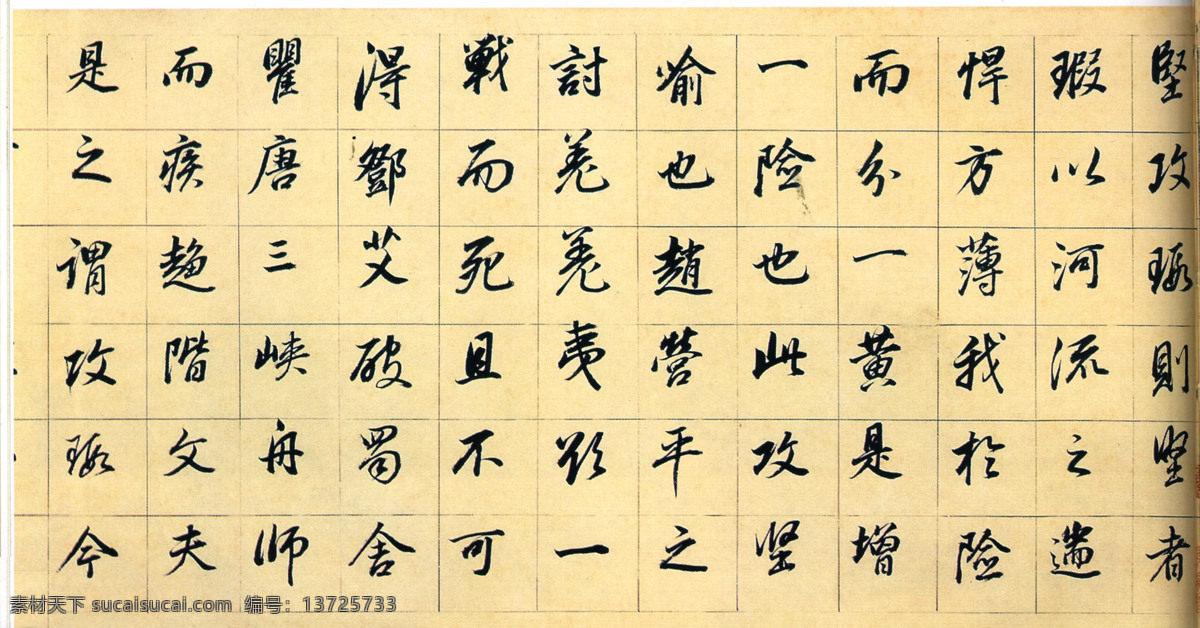 堅攻瑕則堅者
瑕以河流之遄
悍方薄我於險
而分一黃是增
一險也此攻堅
喻也趙營平之
討羌羌夷欲一
戰而死且不可
得鄧艾破蜀舍
瞿唐三峽舟師
而疾趨階文夫
是之謂攻瑕今
素材天下 sucaisucai.com 编号：13725733